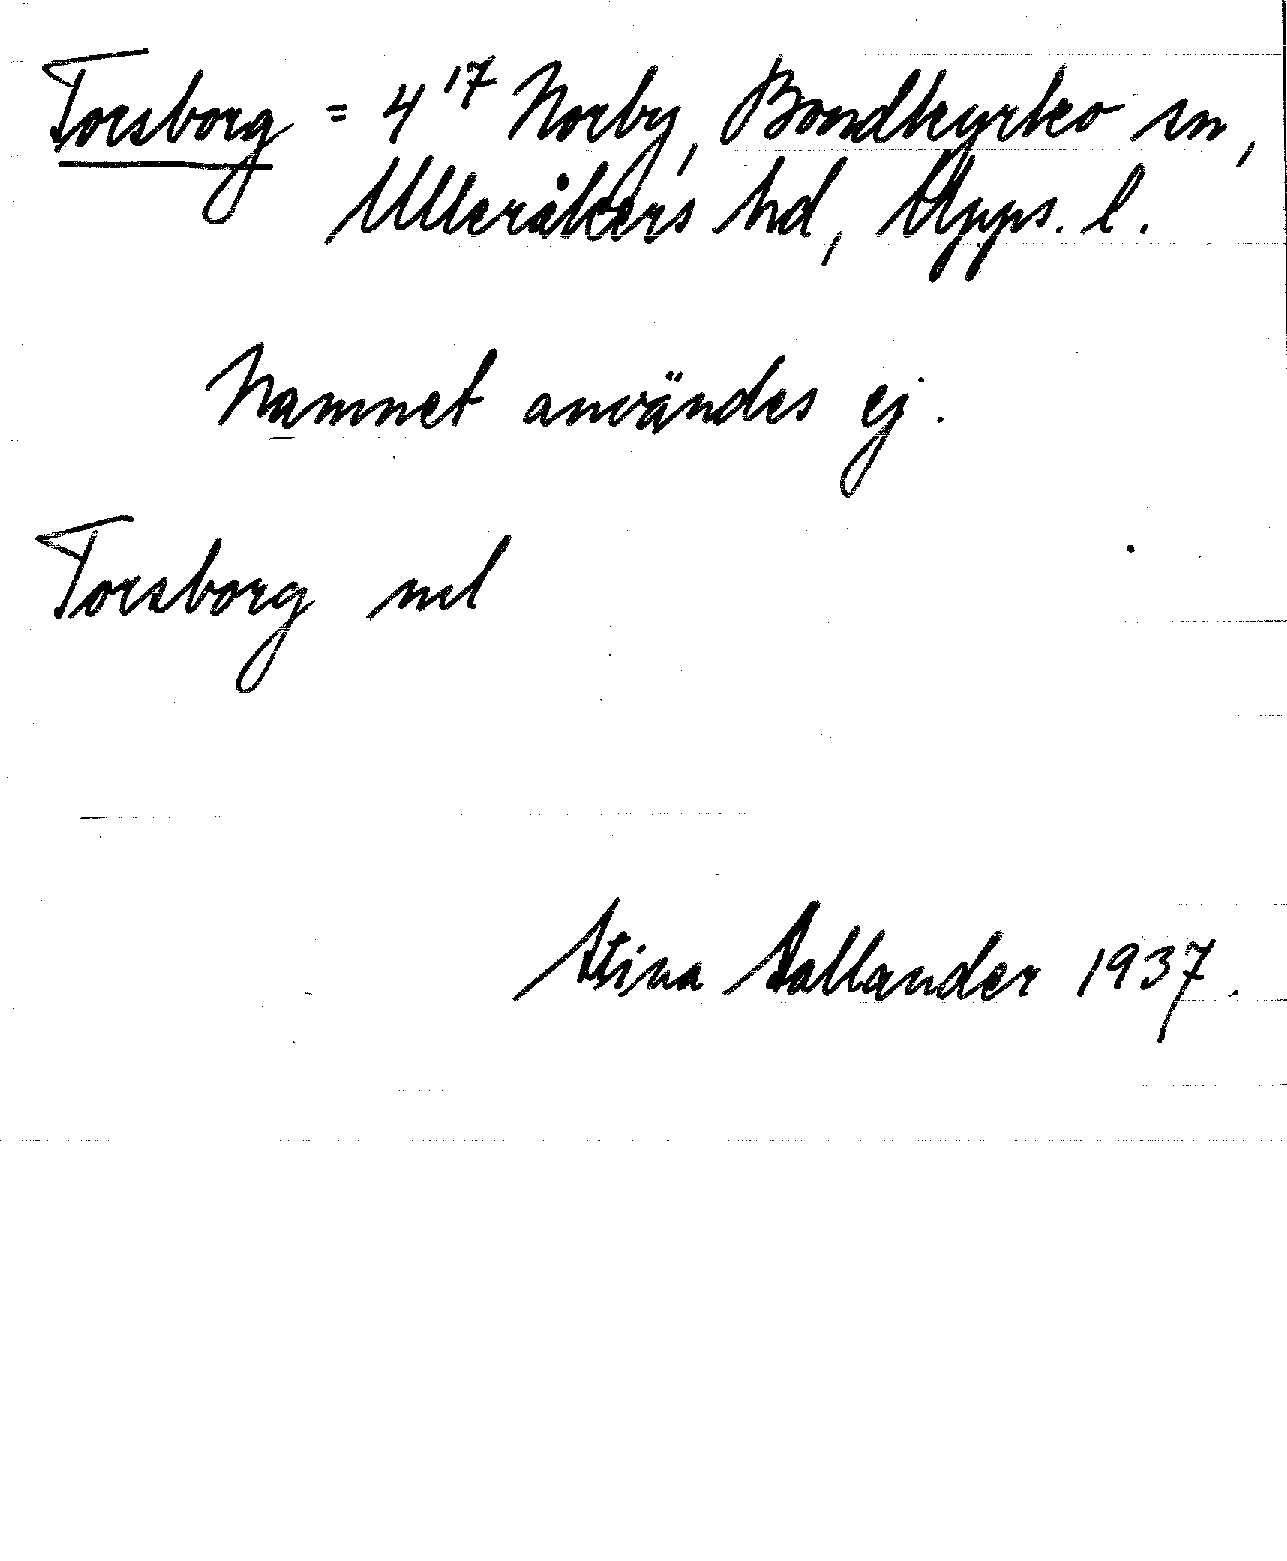 Torsborg = 4¹⁷ Norby, Bondkyrko sn,
Ulleråkers hd, Upps. l.
Namnet användes ej.
Torsborg nel
Stina Sallander 1937.